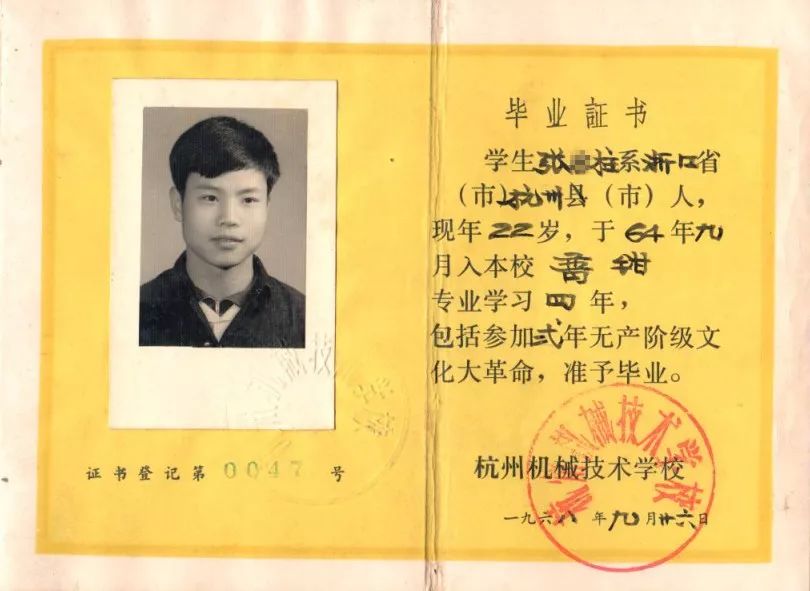 证书登记第 0047 号
毕业証书
学生张 拄系浙江省
（市）杭州县（市）人，
现年22岁，于64年九
月入本校
专业学习四年，
包括参加弍年无产阶级文
化大革命，准予毕业。
杭州机械技术学校
一九六八年九月廿六日
杭州机械技术学校